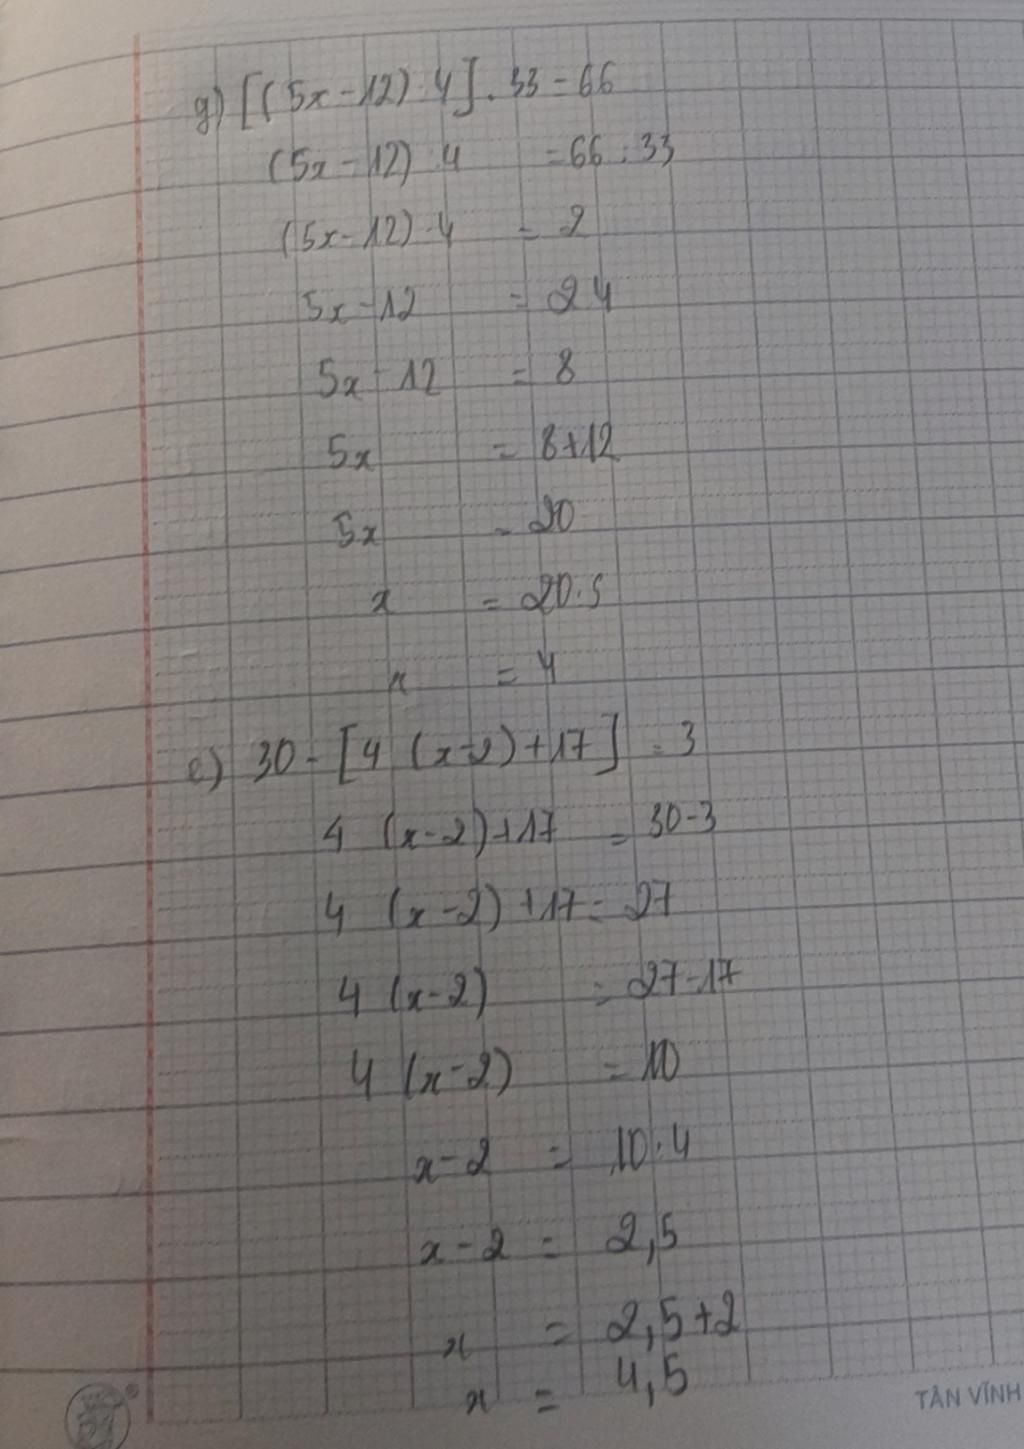 g) [(5x-12) : 4] . 33 = 66
(5x-12) : 4 = 66 : 33
(5x-12) : 4 = 2
5x-12 = 2.4
5x-12 = 8
5x = 8+12
5x = 20
x = 20:5
x = 4
e) 30 - [4 (x-2)+17] = 3
4 (x-2)+17 = 30-3
4 (x-2) +17 = 27
4 (x-2) = 27-17
4 (x-2) = 10
x-2 = 10:4
x-2 = 2,5
x = 2,5+2
x = 4,5
TÂN VĨNH